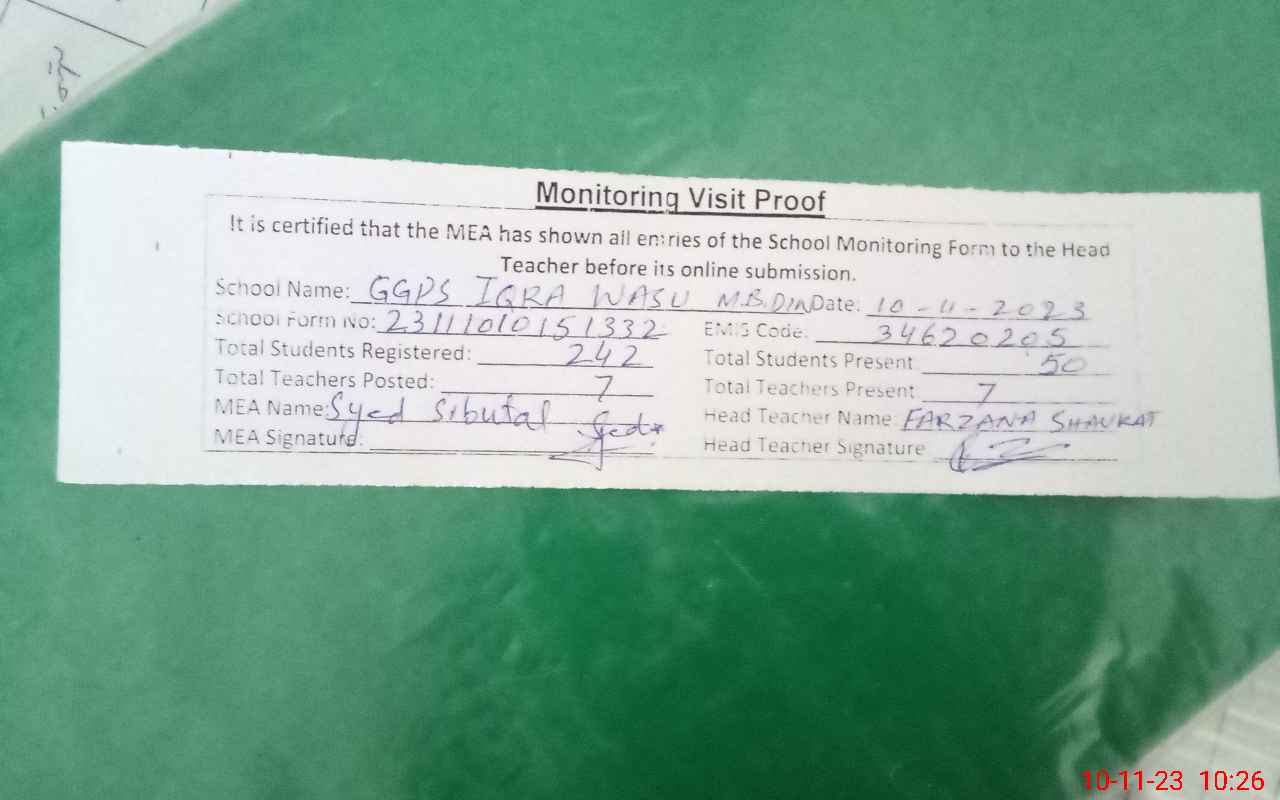 Monitoring Visit Proof
It is certified that the MEA has shown all entries of the School Monitoring Form to the Head
Teacher before its online submission.
School Name: GGPS IQRA WASU M.B.DIN Date: 10-11-2023
School Form No: 2311101015 1332 EMIS Code: 34620205
Total Students Registered: 242 Total Students Present 50
Total Teachers Posted: 7 Total Teachers Present 7
MEA Name: Syed Sibutal Head Teacher Name: FARZANA SHAUKAT
MEA Signature: Head Teacher Signature
10-11-23 10:26